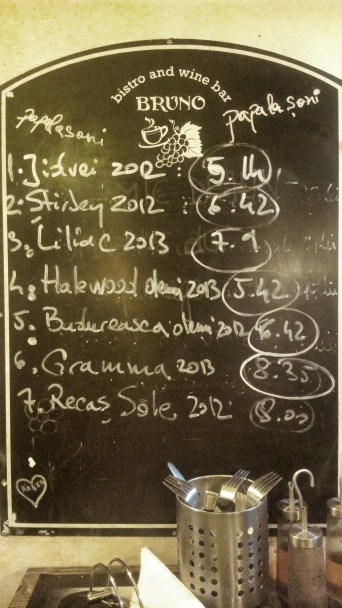 bistro and wine bar
BRUNO
papalasoni papalasoni
1. Jidvei 2012 : 5.14
2. Stirbey 2012 : 6.42
3. Liliac 2013 7.9
4. Halewood demi 2013 5.42
5. Budureasca demi 2012 6.42
6. Gramma 2013 8.35
7. Recaș Sole 2012 8.00